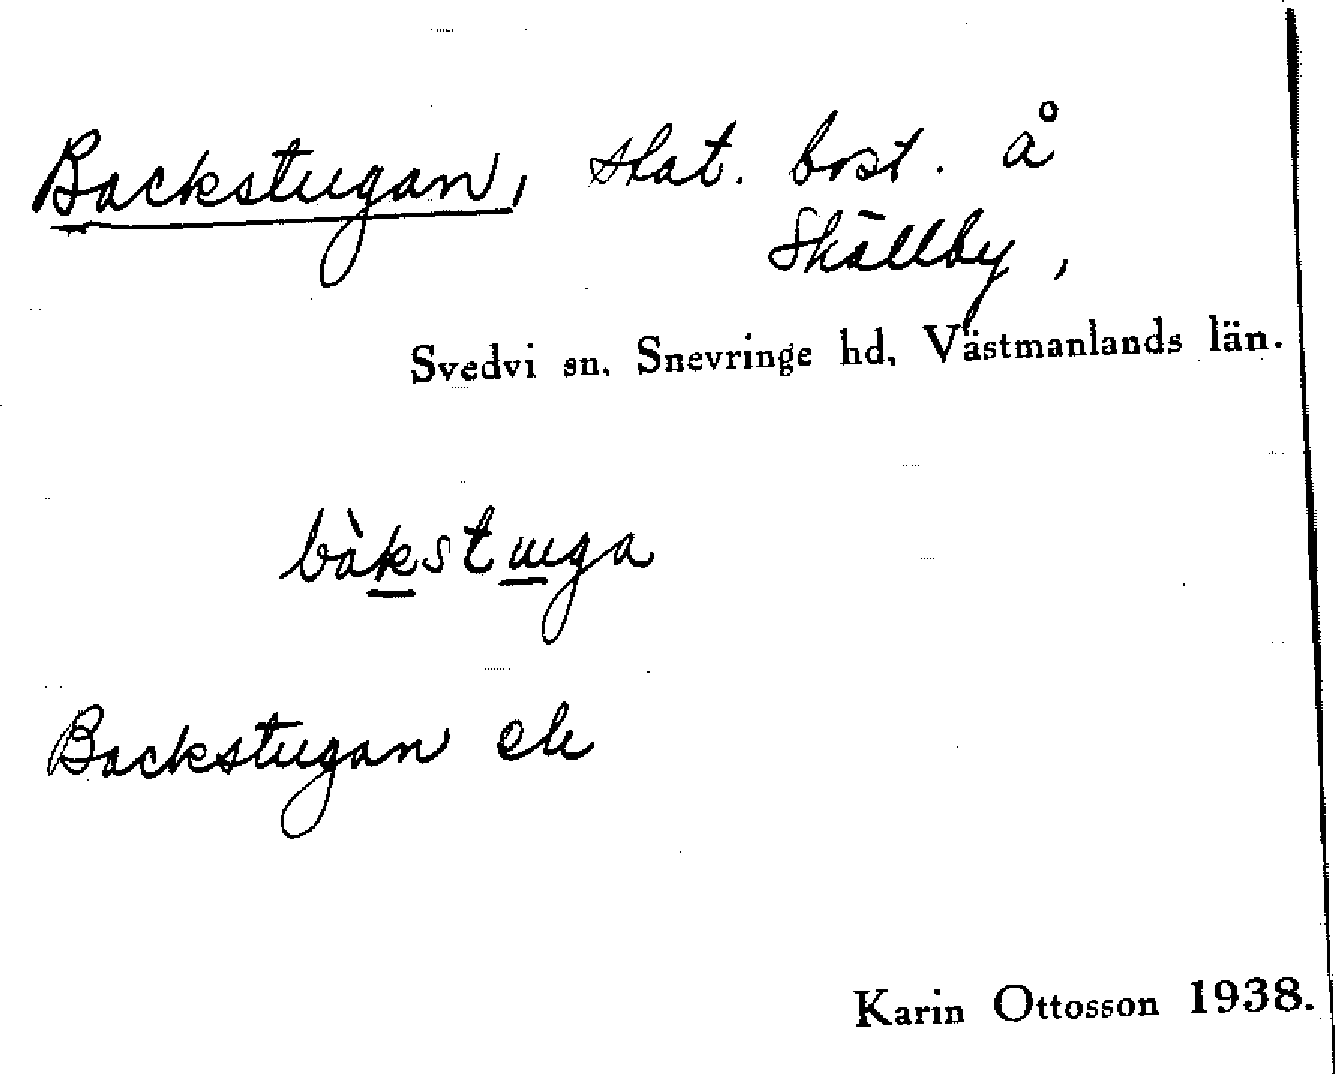 Backstugan, stat. bost. å
Skällby,
Svedvi sn, Snevringe hd, Västmanlands län.
bàkstuga
Backstugan ek
Karin Ottosson 1938.